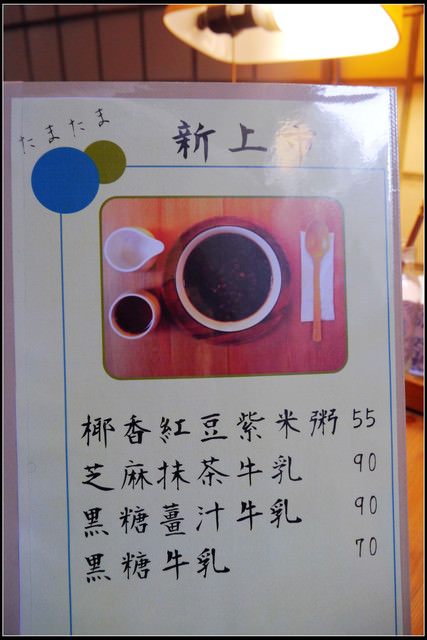 たまたま
新上市
椰香紅豆紫米粥 55
芝麻抹茶牛乳 90
黑糖薑汁牛乳 90
黑糖牛乳 70